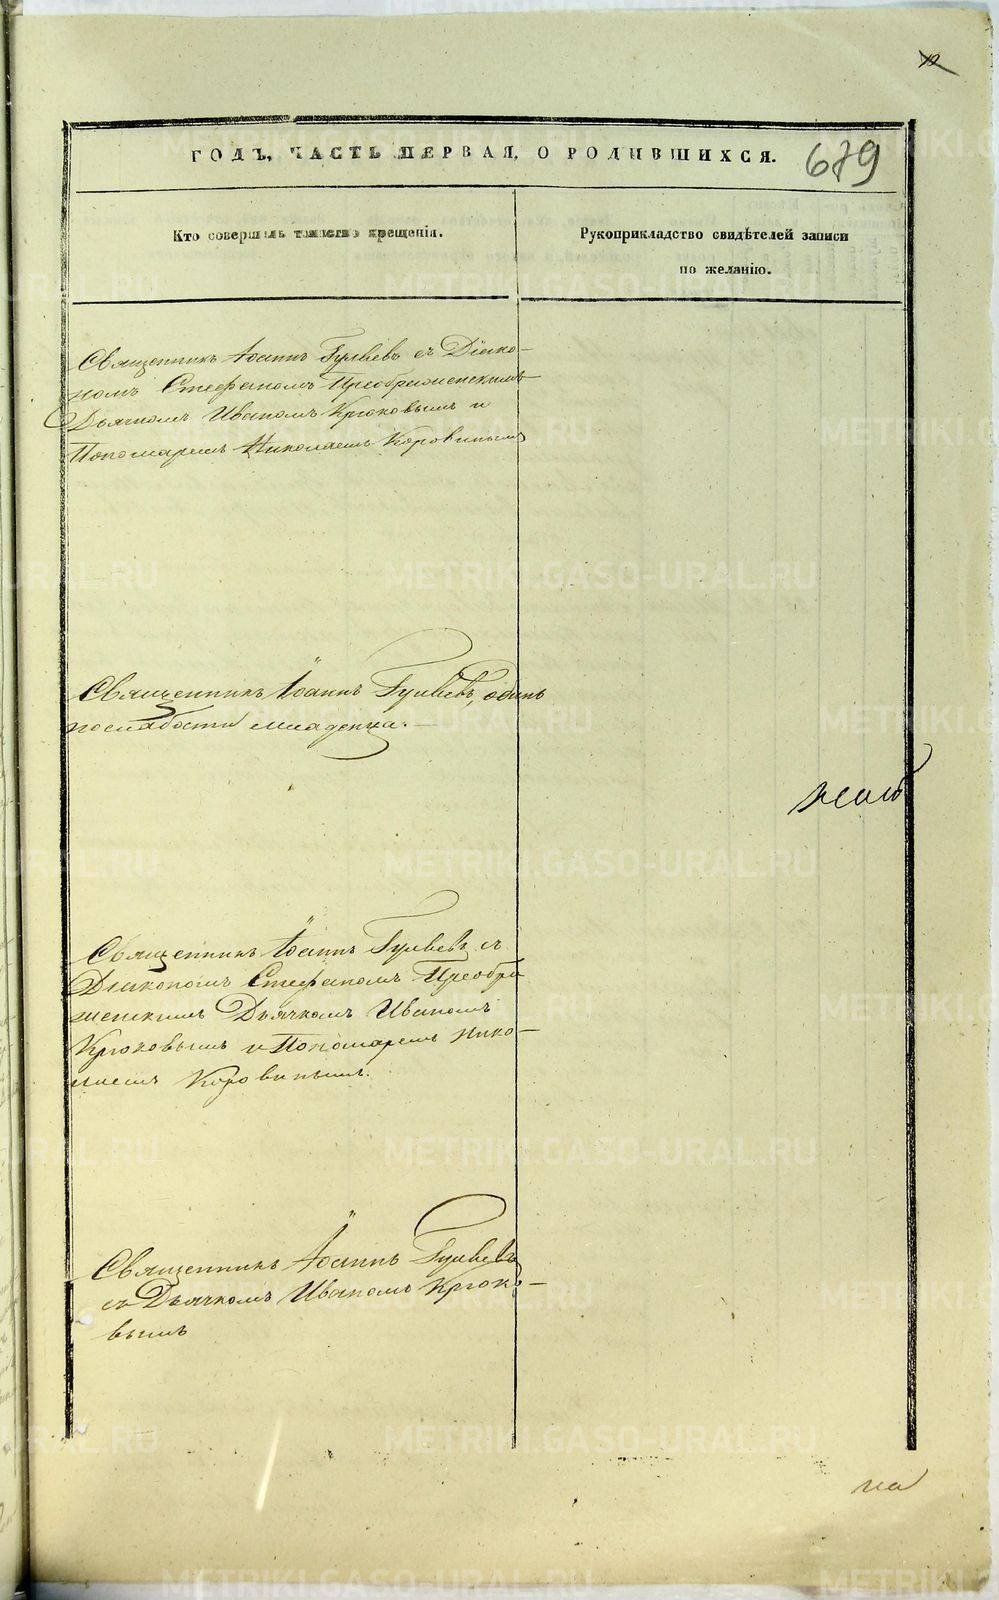 12
ГОДЪ, ЧАСТЬ ПЕРВАЯ, О РОДИВШИХСЯ. 679
Кто совершалъ таинство крещенія.
Рукоприкладство свидѣтелей записи
по желанію.
Священникъ Іоаннъ Гуляевъ съ Діако-
номъ Стефаномъ Преображенскимъ
Дьячкомъ Иваномъ Крюковымъ и
Пономаремъ Николаемъ Коровинымъ
Священникъ Іоаннъ Гуляевъ, одинъ
послабости младенца.
Священникъ Іоаннъ Гуляевъ съ
Діакономъ Стефаномъ Преобра
женскимъ Дьячкомъ Иваномъ
Крюковымъ и Пономаремъ Нико-
лаемъ Коровинымъ.
Священникъ Іоаннъ Гуляевъ
съ Дьячкомъ Иваномъ Крюко-
вымъ
на
METRIKI.GASO-URAL.RU